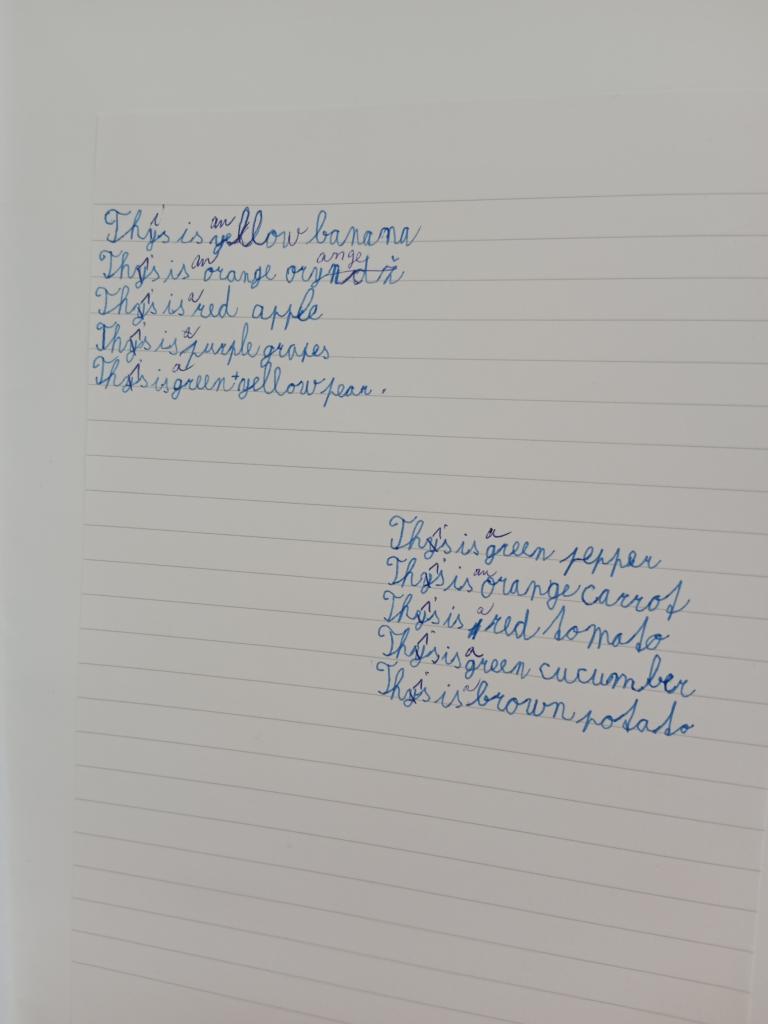 This is an yellow banana
This is an orange orange
This is a red apple
This is a purple grapes
This is a green+yellow pear.
This is a green pepper
This is an orange carrot
This is a red tomato
This is a green cucumber
This is a brown potato